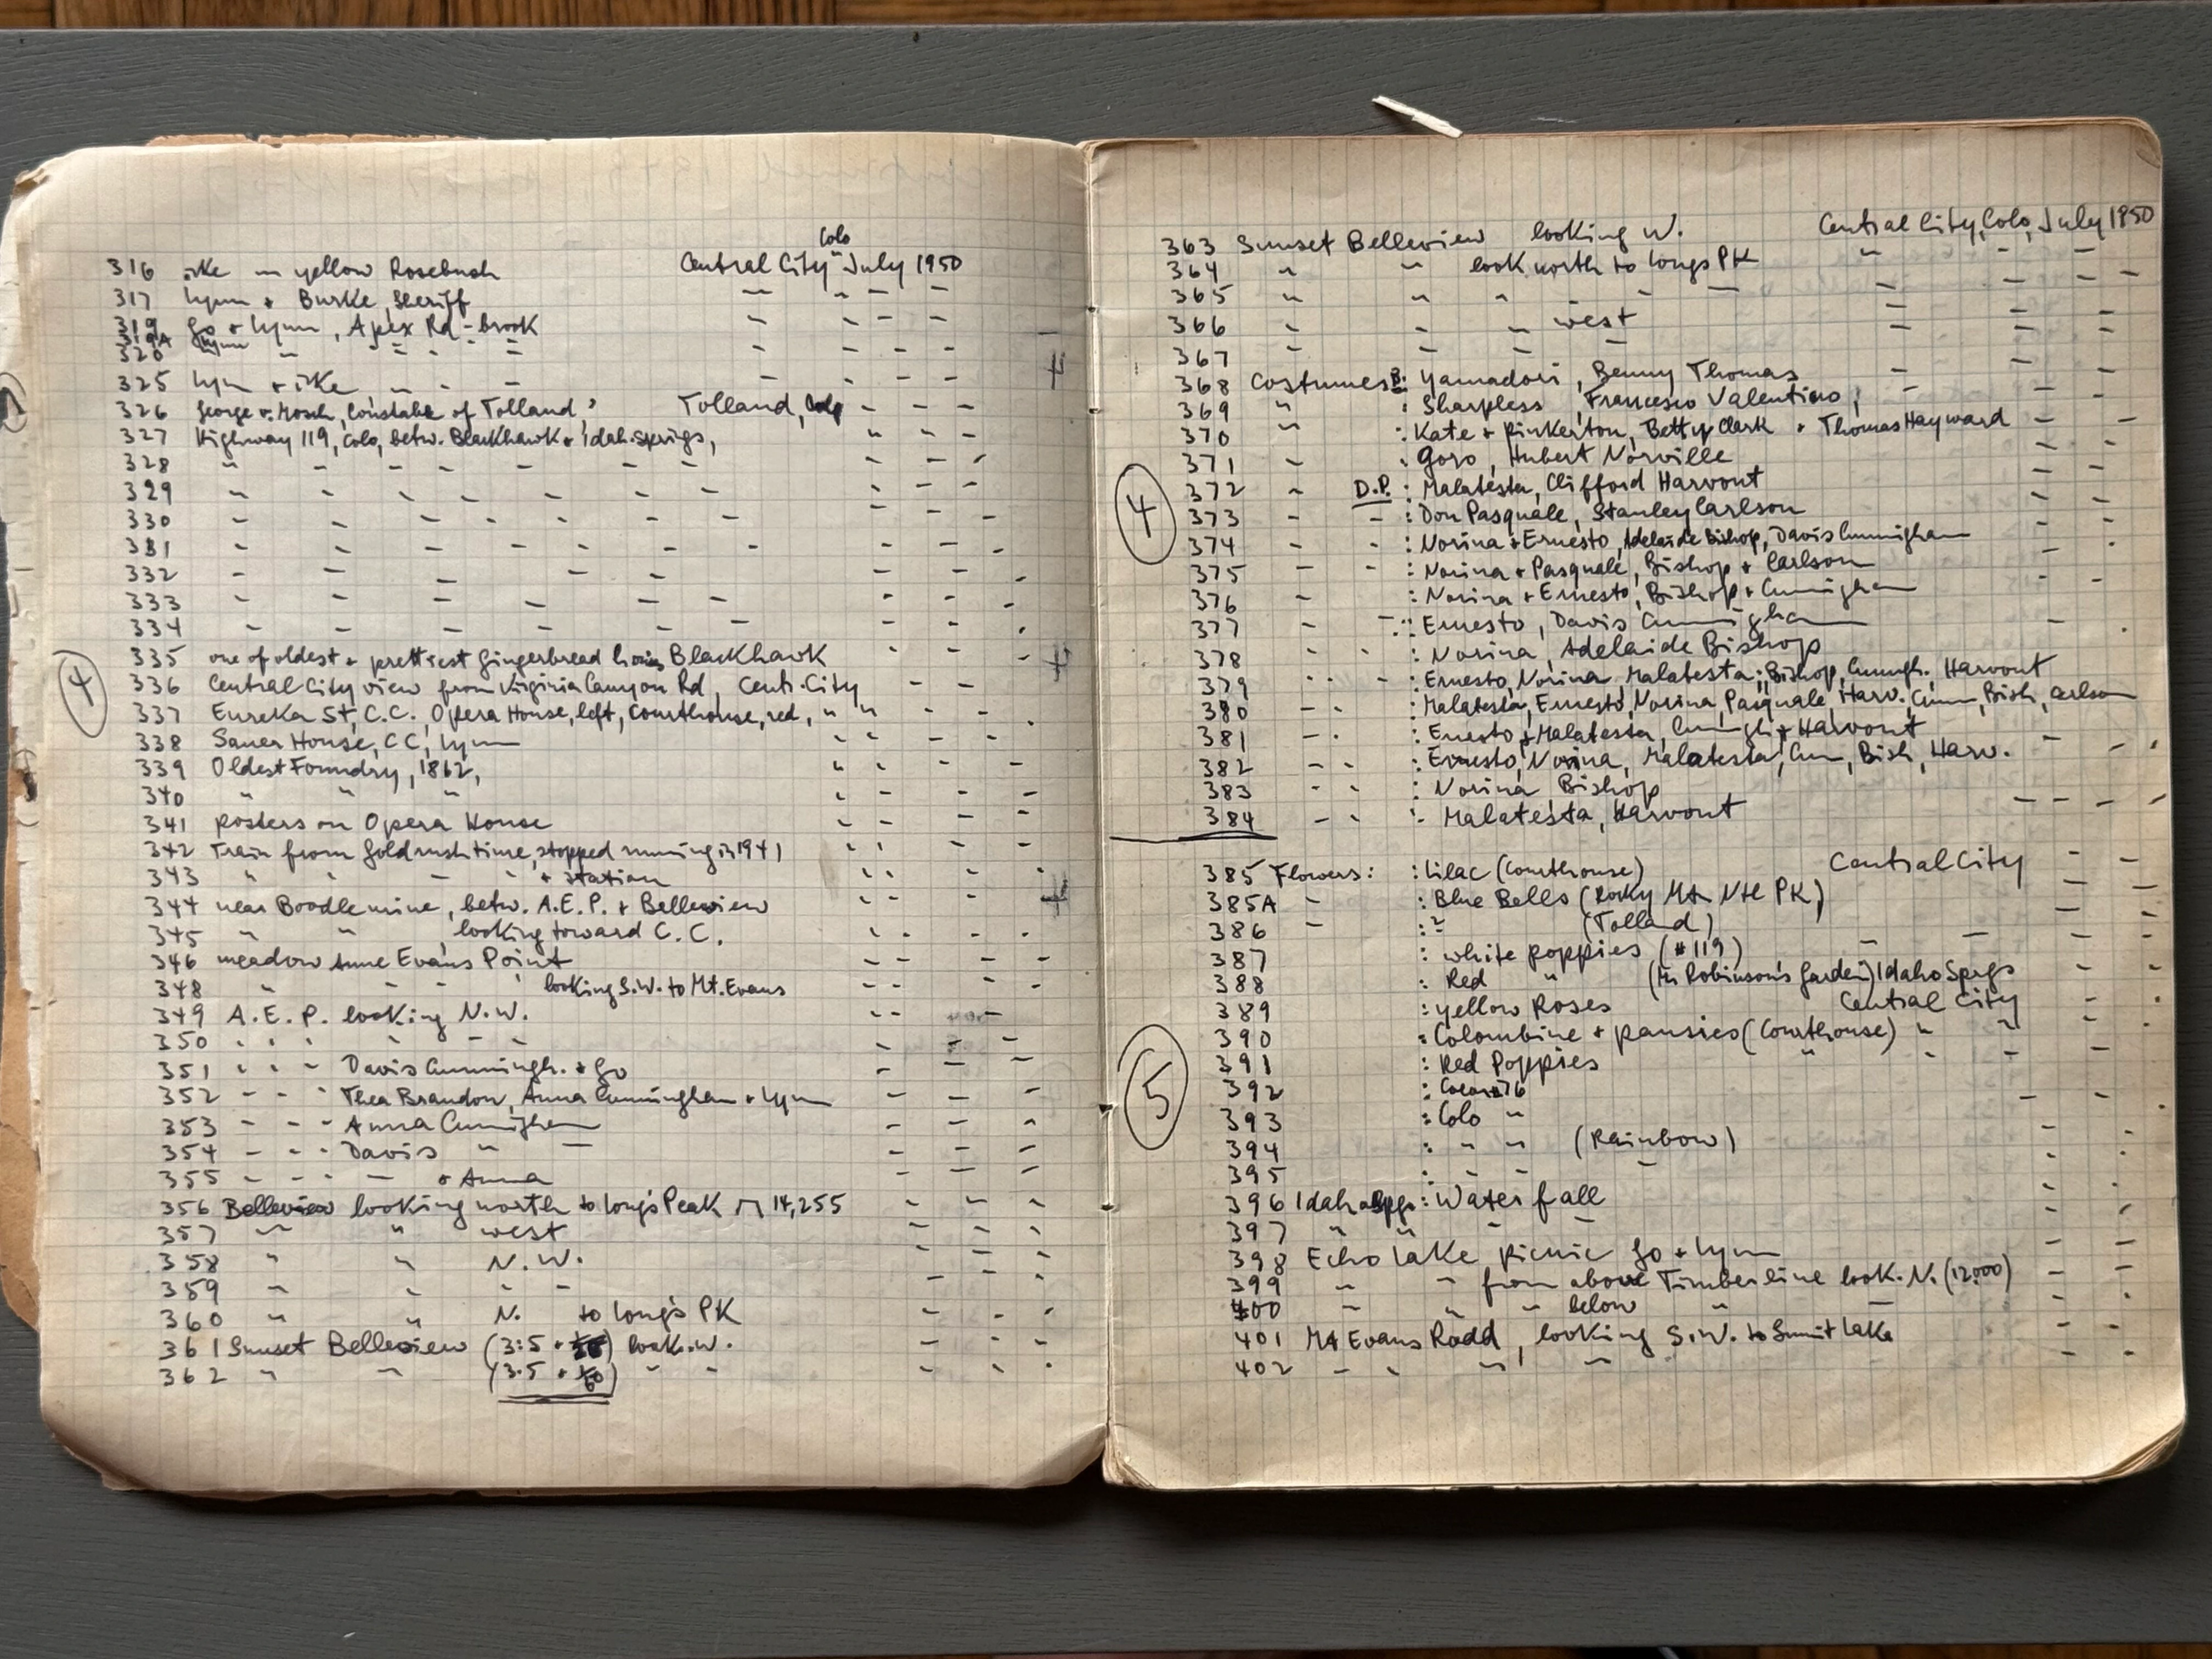 316 ike in yellow Rosebush Central City Colo July 1950
317 Lynn + Burke, Sheriff " " " "
319 Jo + Lynn, Apex Rd - brook " " " "
319A Lynn
320 " " " " " " " "
325 Lynn + ike " " " " " " "
326 George v. Mosch, Constable of Tolland, Tolland, Colo " " "
327 Highway 119, Colo, betw. Blackhawk + Idah. Springs, " " "
328 " " " " " " " " "
329 " " " " " " " " " "
330 " " " " " " " " "
331 " " " " " " " " "
332 " " " " " " " "
333 " " " " " " " "
334 " " " " " " " "
335 one of oldest + prettiest gingerbread Blackhawk " " "
336 Central City view from Virginia Canyon Rd, Centr. City " " "
337 Eureka St, C.C. Opera House, left, Courthouse, red, " " " " "
338 Sauer House, CC, Lynn " " " "
339 Oldest Foundry, 1862, " " " "
340 " " " " " " "
341 posters on Opera House " " " "
342 Train from Goldrush time, stopped running in 1941 " " " "
343 " " " " + station " " " "
344 near Boodle mine, betw. A.E.P. + Belleview " " " "
345 " " , looking toward C.C. " " " "
346 meadow Anne Evans Point " " " "
348 " " " looking S.W. to Mt. Evans " " " "
349 A.E.P. looking N.W. " " "
350 " " " " " " " " "
351 " " " Davis Cunningh. + Jo " " "
352 " " " Thea Brandon, Anna Cunningham + Lynn " " "
353 " " " Anna Cunningham " " "
354 " " " Davis " " " "
355 " " " " + Anna " " "
356 Belleview looking north to Longs Peak 14,255 " " "
357 " " west " " "
358 " " N.W. " " "
359 " " " " " " "
360 " " N. to Longs PK " " "
361 Sunset Belleview (3:5 + ) look. W. " " "
362 " " (3.5 + 1/60) " " " " "
④
363 Sunset Belleview looking W. Central City, Colo, July 1950
364 " " look. north to Longs PK " " "
365 " " " " " " "
366 " " " west " " "
367 " " " " " " "
368 Costumes B: Yamadori, Benny Thomas " "
369 " : Sharpless, Francesco Valentino, " "
370 " : Kate + Pinkerton, Betty Clark + Thomas Hayward " "
371 " : Goro, Hubert Norville " "
372 " D.P. : Malatesta, Clifford Harvout " "
373 " " : Don Pasquale, Stanley Carlson " "
374 " " : Norina + Ernesto, Adelaide Bishop, Davis Cunningham " "
375 " " : Norina + Pasquale, Bishop + Carlson " "
376 " : Norina + Ernesto, Bishop + Cunningham
377 " " : Ernesto, Davis Cunningham " "
378 " " : Norina, Adelaide Bishop
379 " " " : Ernesto, Norina, Malatesta; Bishop, Cunningh. Harvout
380 " " : Malatesta, Ernesto, Norina, Pasquale, Harv. Cunn, Bish, Carlson
381 " " : Ernesto + Malatesta, Cunningh + Harvout
382 " " : Ernesto, Norina, Malatesta, Cun, Bish, Harv. " "
383 " " : Norina Bishop
384 " " : Malatesta, Harvout " " " "
④
385 Flowers: : Lilac (Courthouse) Central City " "
385A " : Blue Bells (Rocky Mt. Ntl PK) " "
386 " : ? (Tolland) " "
387 : white poppies (#119) " " " "
388 : Red " (Mr Robinson's Garden) Idaho Sprgs " "
389 : yellow Roses Central City " "
390 : Colombine + pansies (Courthouse) " " " "
391 : Red Poppies " " " "
392
393 : Colo "
394 : " " (Rainbow)
395 : " " "
396 Idaho Spgs : Waterfall " "
397 " " " " " "
398 Echo Lake picnic Jo + Lynn " "
399 " " from above Timberline look. N. (12.000) " "
400 " " " below " " "
401 Mt Evans Road, looking S.W. to Summit Lake " "
402 " " " " " "
⑤